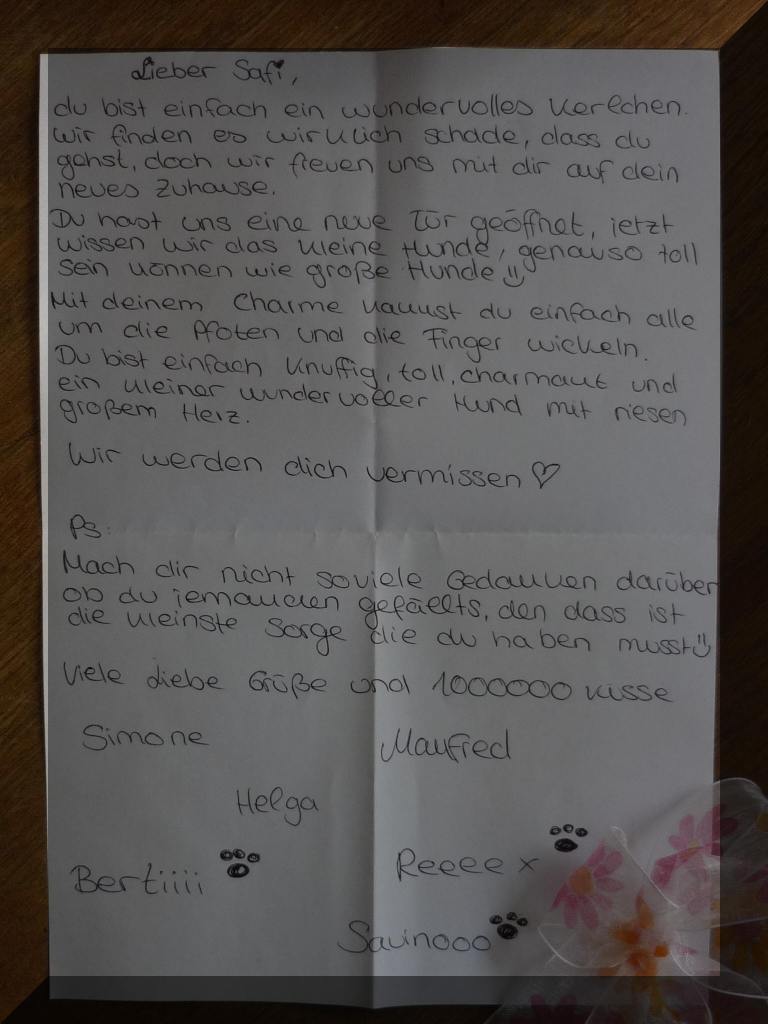 Lieber Safi,
du bist einfach ein wundervolles Kerlchen.
Wir finden es wirklich schade, dass du
gehst, doch wir freuen uns mit dir auf dein
neues Zuhause.
Du hast uns eine neue Tür geöffnet, jetzt
wissen wir das kleine Hunde, genauso toll
sein können wie große Hunde☺
Mit deinem Charme kannst du einfach alle
um die Pfoten und die Finger wickeln.
Du bist einfach knuffig, toll, charmant und
ein kleiner wundervoller Hund mit riesen
großem Herz.
Wir werden dich vermissen♡
Ps:
Mach dir nicht soviele Gedanken darüber
ob du jemanden gefällts, den dass ist
die kleinste Sorge die du haben musst☺
Viele Liebe Grüße und 1000000 Küsse
Simone Manfred
Helga
Bertiiii Reeeex
Savinooo